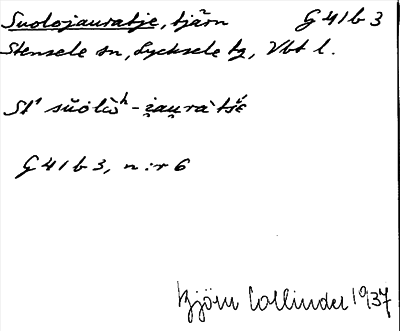 Suolojauratje, tjärn G 41 b 3
Stensele sn, Lycksele tg, Vbt l.
St¹
G 41 b 3, n:r 6
Björn Collinder 1937